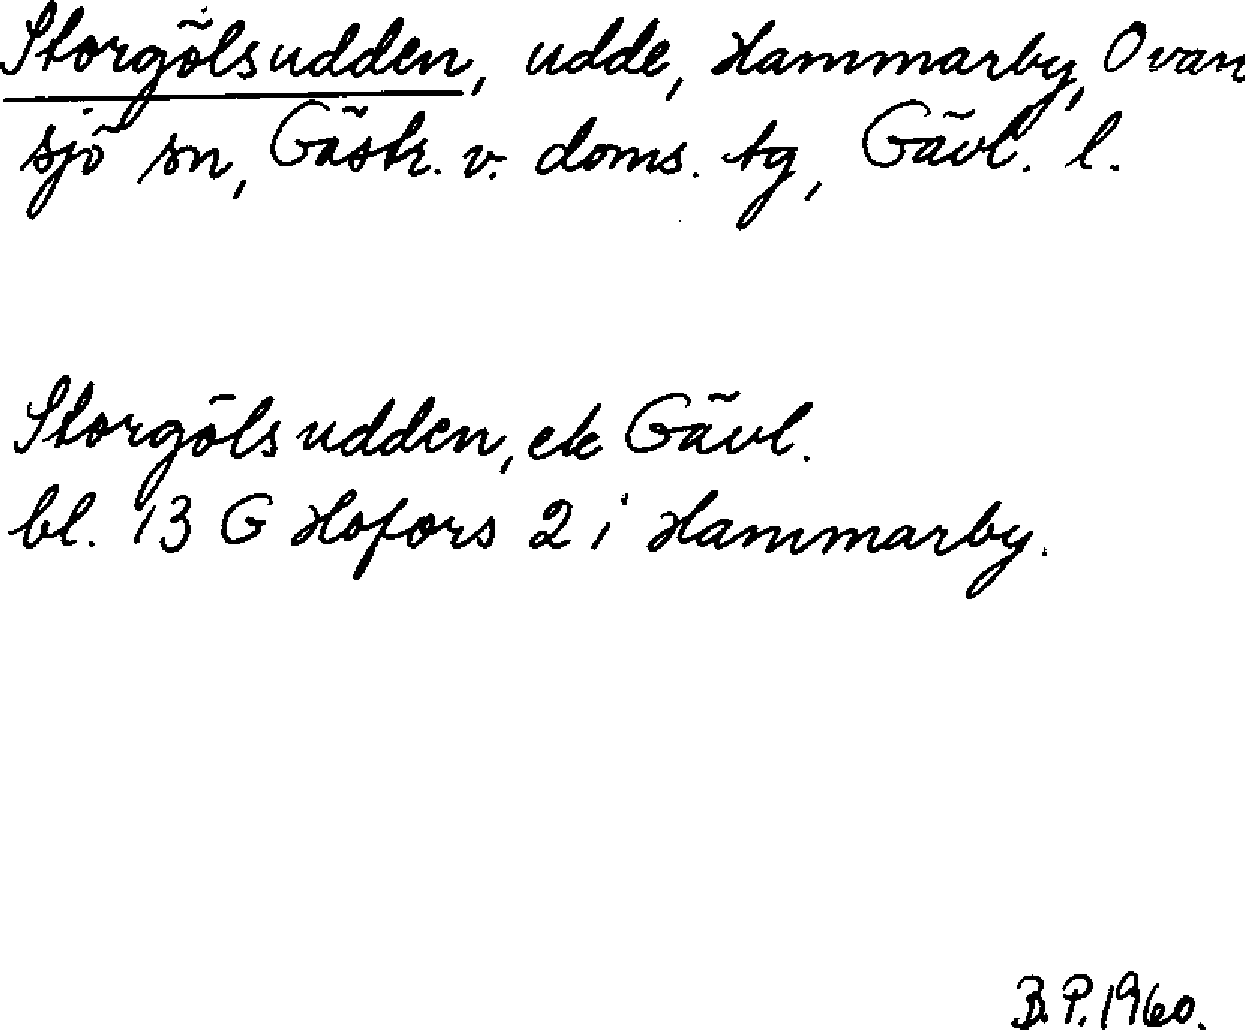 Storgölsudden, udde, Hammarby, Ovan
sjö sn, Gästr. v. doms. tg, Gävl. l.
Storgölsudden, ek Gävl.
bl. 13 G Hofors 2 i Hammarby.
B.P. 1960.